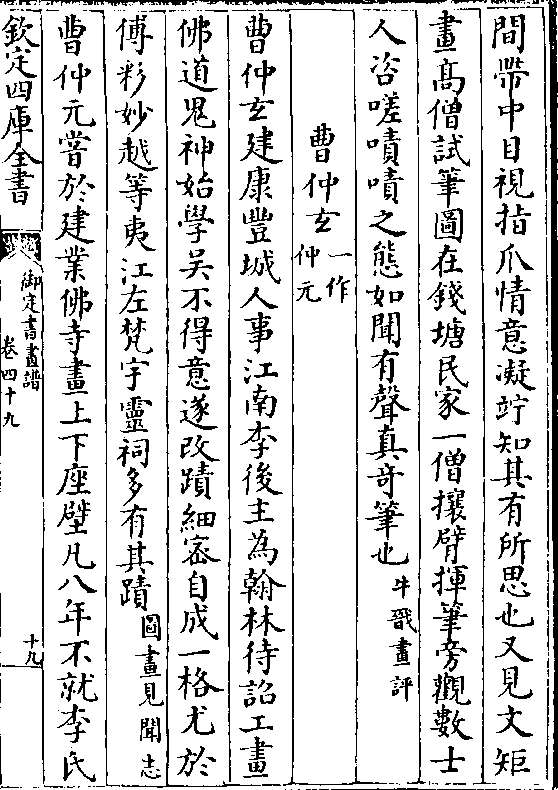 間帶中目視指爪情意凝竚知其有所思也又見文矩
畫髙僧試筆圖在錢塘民家一僧攘臂揮筆旁觀數士
人咨嗟嘖嘖之態如聞有聲真竒筆也牛戩畫評
曹仲玄一作仲元
曹仲玄建康豐城人事江南李後主為翰林待詔工畫
佛道鬼神始學吴不得意遂改蹟細宻自成一格尤於
傅彩妙越等夷江左梵宇靈祠多有其蹟圖畫見聞志
曹仲元嘗於建業佛寺畫上下座壁凡八年不就李氏
欽定四庫全書
御定書畫譜
卷四十九
十九